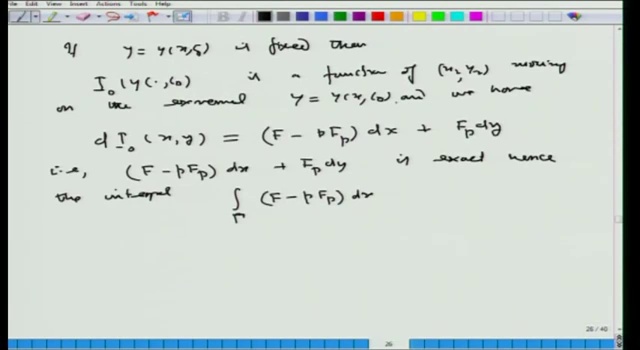 File Edit View Insert Actions Tools Help
If y = y(x, c) is fixed then
I₀(y(·, c₀) is a function of (x₂, y₂) moving
on the extremal y = y(x, c₀) and we have
d I₀(x, y) = (F − pF_p) dx + F_p dy
i.e., (F − pF_p) dx + F_p dy is exact hence
the integral ∫_Γ (F − pF_p) dx
26 / 40
26